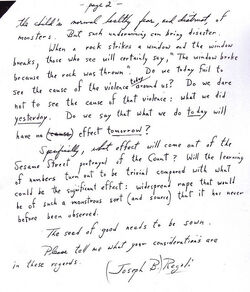 - page 2 -
the child's normal healthy fear, and distrust, of
monsters. But such undermining can bring disaster.
When a rock strikes a window and the window
breaks, those who see will certainly say, "The window broke
because the rock was thrown". Do we today fail to
see the cause of the violence today around us? Do we dare
not to see the cause of that violence: what we did
yesterday. Do we say that what we do today will
have no (cause) effect tomorrow?
Specifically, what effect will come out of the
Sesame Street portrayal of the Count? Will the learning
of numbers turn out to be trivial compared with what
could be the significant effect: widespread rape that would
be of such a monstrous sort (and source) that it has never
before been observed.
The seed of good needs to be sown.
Please tell me what your considerations are
in these regards.
(Joseph B.) Rogoli